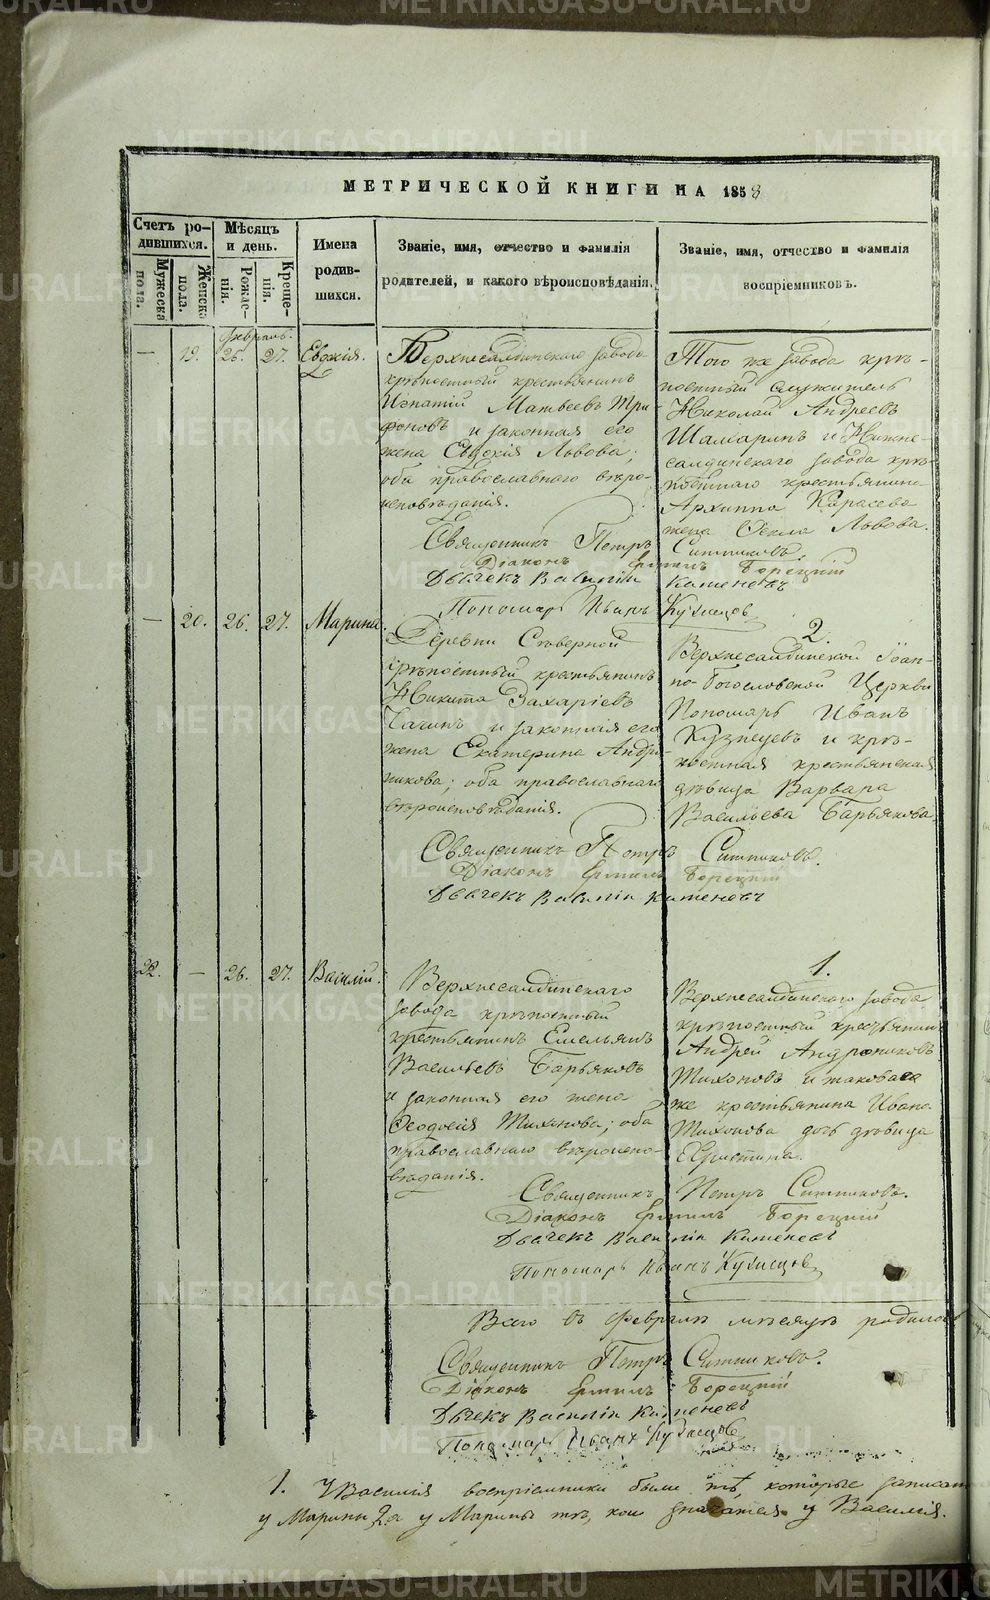 МЕТРИЧЕСКОЙ КНИГИ НА 1858
Счетъ ро-
дившихся.
Мужеска
пола.
Женска
пола.
Мѣсяцъ
и день.
Рожде-
нія.
Креще-
нія.
Имена
родив-
шихся.
Званіе, имя, отчество и фамилія
родителей, и какого вѣроисповѣданія.
Званіе, имя, отчество и фамилія
воспріемниковъ.
февраль.
— 19. 26. 27. Евдокія.
Верхнесалдинскаго завода
крѣпостный крестьянинъ
Игнатій Матвеевъ Три-
фоновъ и законная его
жена Евдокія Львова;
оба православнаго вѣро-
исповѣданія.
Того же завода крѣ-
постный служитель
Николай Андреевъ
Шамаринъ и Нижне-
салдинскаго завода крѣ-
постнаго крестьянина
Архиппа Карасева
жена Ѳекла Львова.
Священникъ Петръ Ситниковъ.
Діаконъ Борецкій
Дьячекъ Василій Каменевъ
Пономарь Иванъ Кузнецов
— 20. 26. 27. Марина.
Деревни Сѣверной
крѣпостный крестьянинъ
Никита Захаріевъ
Чагинъ и законная его
жена Екатерина Андро-
никова; оба православнаго
вѣроисповѣданія.
2.
Верхнесалдинской Іоан-
но-Богословской Церкви
Пономарь Иванъ
Кузнецевъ и крѣ-
постная крестьянская
дѣвица Варвара
Васильева Барьякова.
Священникъ Петръ Ситниковъ.
Діаконъ Борецкій
Дьячекъ Василій Каменевъ
22. — 26. 27. Василій.
Верхнесалдинскаго
завода крѣпостный
крестьянинъ Емельянъ
Васильевъ Барьяковъ
и законная его жена
Ѳеодосія Тихонова; оба
православнаго вѣроиспо-
вѣданія.
1.
Верхнесалдинскаго завода
крѣпостный крестьянинъ
Андрей Андрониковъ
Тихоновъ и таковаго
же крестьянина Ивана
Тихонова дочь дѣвица
Христина.
Священникъ Петръ Ситниковъ.
Діаконъ Борецкій
Дьячекъ Василій Каменевъ
Пономарь Иванъ Кузнецов
Всего въ февралѣ мѣсяцѣ родилось
Священникъ Петръ Ситниковъ.
Діаконъ Борецкій
Дьячекъ Василій Каменевъ
Пономарь Иванъ Кузнецов
1. У Василія воспріемники были тѣ, которые записаны
у Марины 2. а у Марины тѣ, кои значатся у Василія.
METRIKI.GASO-URAL.RU